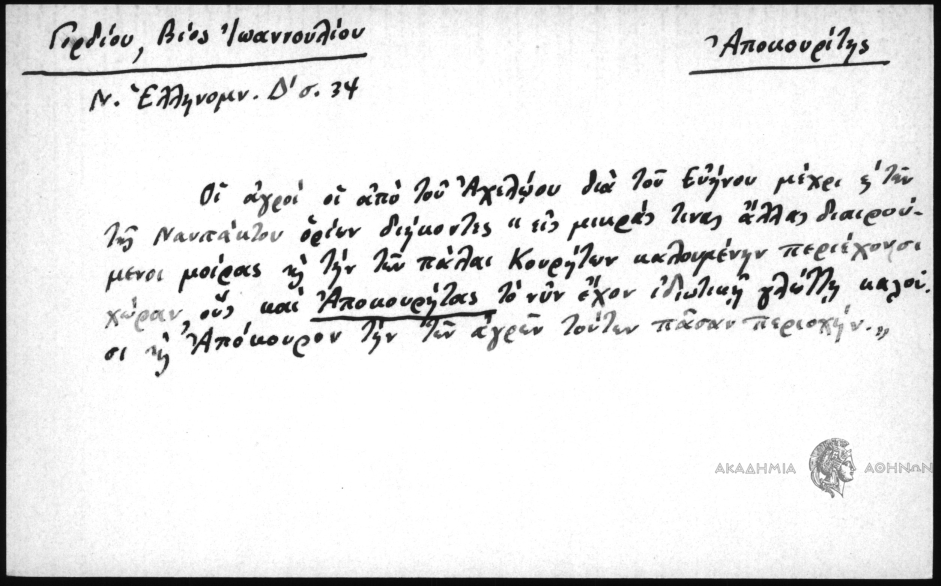 Γορδίου, Βίος Ἰωαννουλίου
Ἀποκουρίτης
Ν. Ἑλληνομν. Δ' σ. 34
Οἱ ἀγροὶ οἱ ἀπὸ τοῦ Ἀχελῴου διὰ τοῦ Εὐήνου μέχρι ϗ τῶν
τῆς Ναυπάκτου ὁρίων διήκοντες « εἰς μικρὰς τινας ἄλλας διαιρού-
μενοι μοίρας ϗ τὴν τῶν πάλαι Κουρήτων καλουμένην περιέχουσι
χώραν, οὓς καὶ Ἀποκουρήτας τὸ νῦν ἔχον ἰδιωτικῇ γλώττῃ καλοῦ-
σι ϗ Ἀπόκουρον τὴν τῶν ἀγρῶν τούτων πᾶσαν περιοχήν.»
ΑΚΑΔΗΜΙΑ ΑΘΗΝΩΝ